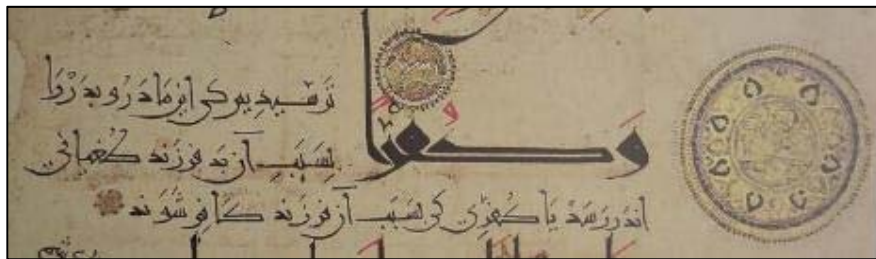 وَكُفْرًا
ترسیدیم کی این مادر و پدر را
بسبب آن بد فرزند طغیانی
اندر رسد یا کفری کی بسبب آن فرزند کافر شوند